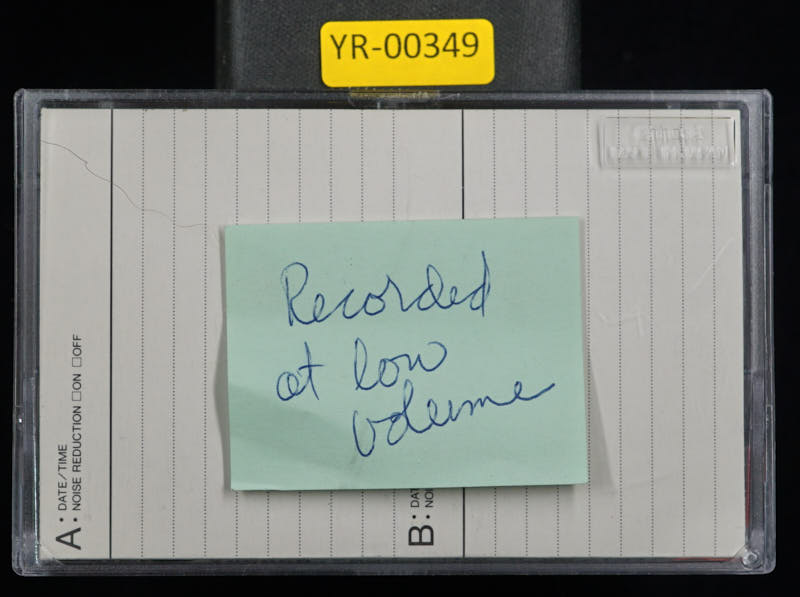 YR-00349
Recorded
at low
volume
A: DATE/TIME
NOISE REDUCTION □ON □OFF
B: